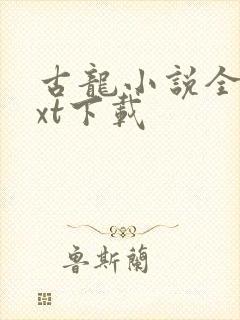 古龍小説全
xt下載
魯斯蘭